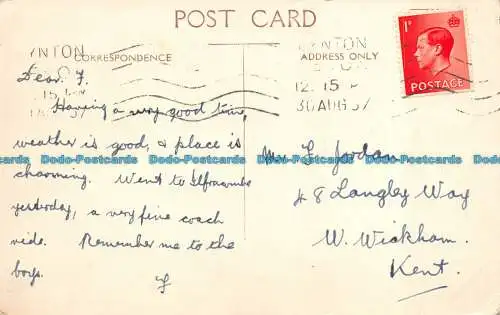 POST CARD
YNTON
CORRESPONDENCE
LYNTON
ADDRESS ONLY
12. 15 P
30 AUG 37
1D
POSTAGE
Dear F.
Having a very good time,
weather is good, & place is
charming. Went to Ilfracombe
yesterday, a very fine coach
ride. Remember me to the
boys.
F
F Jordan
48 Langley Way
W. Wickham.
Kent.
Dodo-Postcards Dodo-Postcards Dodo-Postcards Dodo-Postcards Dodo-Postcards